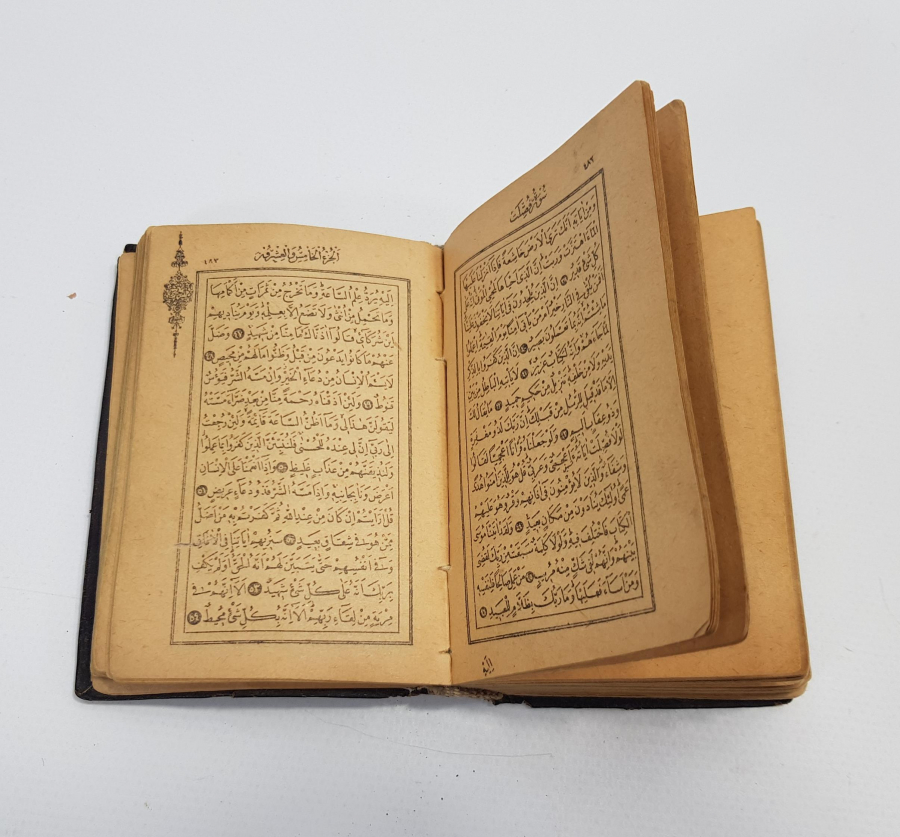 ٤٨٢
سُورَةُ فُصِّلَتْ
وَمِنْ اٰيَاتِهٖٓ اَنَّكَ تَرَى الْاَرْضَ خَاشِعَةً فَاِذَٓا اَنْزَلْنَا عَلَيْهَا
الْمَٓاءَ اهْتَزَّتْ وَرَبَتْ اِنَّ الَّذٖٓي اَحْيَاهَا لَمُحْيِ الْمَوْتٰى اِنَّهُ عَلٰى
كُلِّ شَيْءٍ قَدٖيرٌ ٣٩ اِنَّ الَّذٖينَ يُلْحِدُونَ فٖٓي اٰيَاتِنَا لَا يَخْفَوْنَ عَلَيْنَا
اَفَمَنْ يُلْقٰى فِي النَّارِ خَيْرٌ اَمْ مَنْ يَأْتٖٓي اٰمِنًا يَوْمَ الْقِيٰمَةِ اِعْمَلُوا
مَا شِئْتُمْ اِنَّهُ بِمَا تَعْمَلُونَ بَصٖيرٌ ٤٠ اِنَّ الَّذٖينَ كَفَرُوا بِالذِّكْرِ
لَمَّا جَٓاءَهُمْ وَاِنَّهُ لَكِتَابٌ عَزٖيزٌ ٤١ لَا يَأْتٖيهِ الْبَاطِلُ مِنْ بَيْنِ
يَدَيْهِ وَلَا مِنْ خَلْفِهٖ تَنْزٖيلٌ مِنْ حَكٖيمٍ حَمٖيدٍ ٤٢ مَا يُقَالُ لَكَ
اِلَّا مَا قَدْ قٖيلَ لِلرُّسُلِ مِنْ قَبْلِكَ اِنَّ رَبَّكَ لَذُو مَغْفِرَةٍ
وَذُو عِقَابٍ اَلٖيمٍ ٤٣ وَلَوْ جَعَلْنَاهُ قُرْاٰنًا اَعْجَمِيًّا لَقَالُوا
لَوْلَا فُصِّلَتْ اٰيَاتُهُ ءَاَعْجَمِيٌّ وَعَرَبِيٌّ قُلْ هُوَ لِلَّذٖينَ اٰمَنُوا هُدًى
وَشِفَٓاءٌ وَالَّذٖينَ لَا يُؤْمِنُونَ فٖٓي اٰذَانِهِمْ وَقْرٌ وَهُوَ عَلَيْهِمْ
عَمًى اُولٰٓئِكَ يُنَادَوْنَ مِنْ مَكَانٍ بَعٖيدٍ ٤٤ وَلَقَدْ اٰتَيْنَا مُوسَى
الْكِتَابَ فَاخْتُلِفَ فٖيهِ وَلَوْلَا كَلِمَةٌ سَبَقَتْ مِنْ رَبِّكَ لَقُضِيَ
بَيْنَهُمْ وَاِنَّهُمْ لَفٖي شَكٍّ مِنْهُ مُرٖيبٍ ٤٥ مَنْ عَمِلَ صَالِحًا فَلِنَفْسِهٖ
وَمَنْ اَسَٓاءَ فَعَلَيْهَا وَمَا رَبُّكَ بِظَلَّامٍ لِلْعَبٖيدِ ٤٦
اِلَيْهِ
اَلْجُزْءُ الْخَامِسُ وَالْعِشْرُونَ
٤٨٣
اِلَيْهِ يُرَدُّ عِلْمُ السَّاعَةِ وَمَا تَخْرُجُ مِنْ ثَمَرَاتٍ مِنْ اَكْمَامِهَا
وَمَا تَحْمِلُ مِنْ اُنْثٰى وَلَا تَضَعُ اِلَّا بِعِلْمِهٖ وَيَوْمَ يُنَادٖيهِمْ
اَيْنَ شُرَكَٓائٖي قَالُٓوا اٰذَنَّاكَ مَا مِنَّا مِنْ شَهٖيدٍ ٤٧ وَضَلَّ
عَنْهُمْ مَا كَانُوا يَدْعُونَ مِنْ قَبْلُ وَظَنُّوا مَا لَهُمْ مِنْ مَحٖيصٍ ٤٨
لَا يَسْـَٔمُ الْاِنْسَانُ مِنْ دُعَٓاءِ الْخَيْرِ وَاِنْ مَسَّهُ الشَّرُّ فَيَؤُسٌ
قَنُوطٌ ٤٩ وَلَئِنْ اَذَقْنَاهُ رَحْمَةً مِنَّا مِنْ بَعْدِ ضَرَّٓاءَ مَسَّتْهُ
لَيَقُولَنَّ هٰذَا لٖي وَمَٓا اَظُنُّ السَّاعَةَ قَٓائِمَةً وَلَئِنْ رُجِعْتُ
اِلٰى رَبّٖٓي اِنَّ لٖي عِنْدَهُ لَلْحُسْنٰى فَلَنُنَبِّئَنَّ الَّذٖينَ كَفَرُوا بِمَا عَمِلُوا
وَلَنُذٖيقَنَّهُمْ مِنْ عَذَابٍ غَلٖيظٍ ٥٠ وَاِذَٓا اَنْعَمْنَا عَلَى الْاِنْسَانِ
اَعْرَضَ وَنَاٰ بِجَانِبِهٖ وَاِذَا مَسَّهُ الشَّرُّ فَذُو دُعَٓاءٍ عَرٖيضٍ ٥١
قُلْ اَرَاَيْتُمْ اِنْ كَانَ مِنْ عِنْدِ اللّٰهِ ثُمَّ كَفَرْتُمْ بِهٖ مَنْ اَضَلُّ
مِمَّنْ هُوَ فٖي شِقَاقٍ بَعٖيدٍ ٥٢ سَنُرٖيهِمْ اٰيَاتِنَا فِي الْاٰفَاقِ
وَفٖٓي اَنْفُسِهِمْ حَتّٰى يَتَبَيَّنَ لَهُمْ اَنَّهُ الْحَقُّ اَوَلَمْ يَكْفِ
بِرَبِّكَ اَنَّهُ عَلٰى كُلِّ شَيْءٍ شَهٖيدٌ ٥٣ اَلَٓا اِنَّهُمْ فٖي
مِرْيَةٍ مِنْ لِقَٓاءِ رَبِّهِمْ اَلَٓا اِنَّهُ بِكُلِّ شَيْءٍ مُحٖيطٌ ٥٤